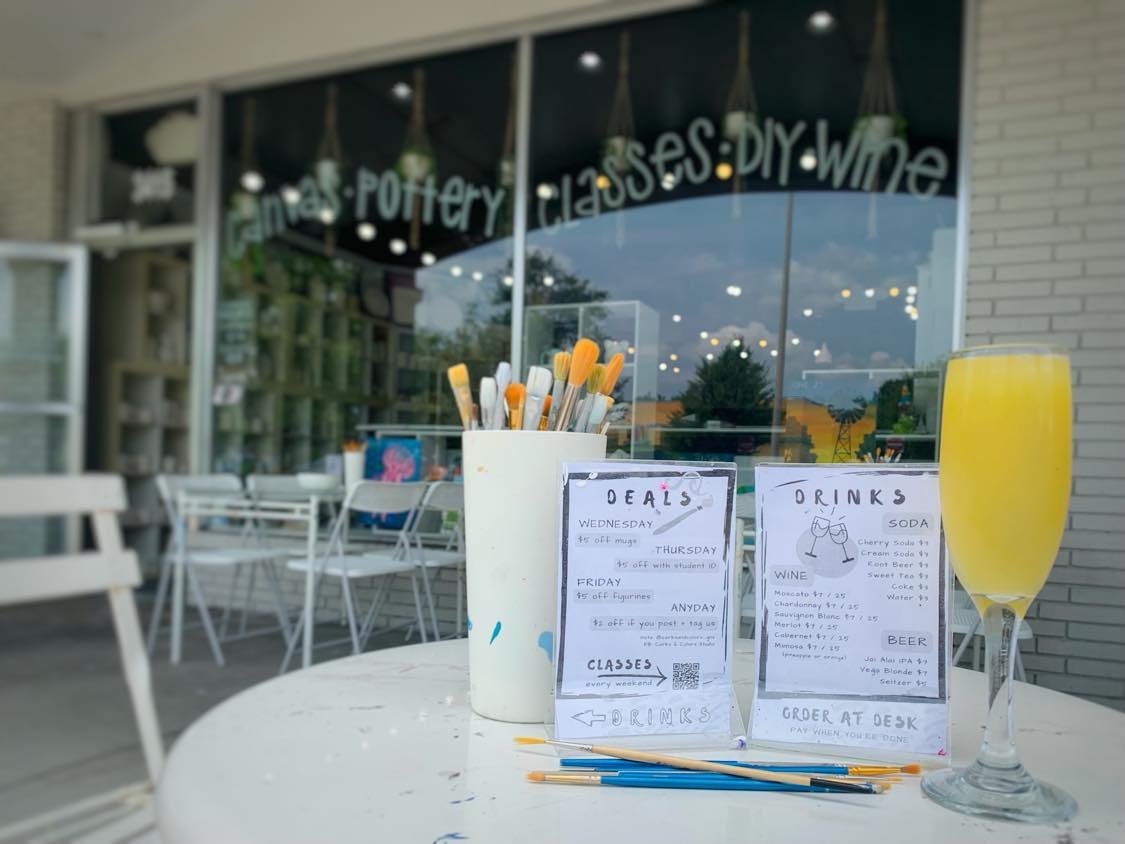 canvas · pottery classes · DIY · wine
DEALS
WEDNESDAY
$5 off mugs
THURSDAY
$5 off with student ID
FRIDAY
$5 off figurines
ANYDAY
$2 off if you post + tag us
FB: Corks & Colors Studio
CLASSES
every weekend
DRINKS
DRINKS
SODA
Cherry Soda $3
Cream Soda $3
Root Beer $3
Sweet Tea $3
Coke $3
Water $3
WINE
Moscato $7 / 25
Chardonnay $7 / 25
Sauvignon Blanc $7 / 25
Merlot $7 / 25
Cabernet $7 / 25
Mimosa $7 / 25
(pineapple or orange)
BEER
Jai Alai IPA $7
Vega Blonde $7
Seltzer $5
ORDER AT DESK
PAY WHEN YOU'RE DONE